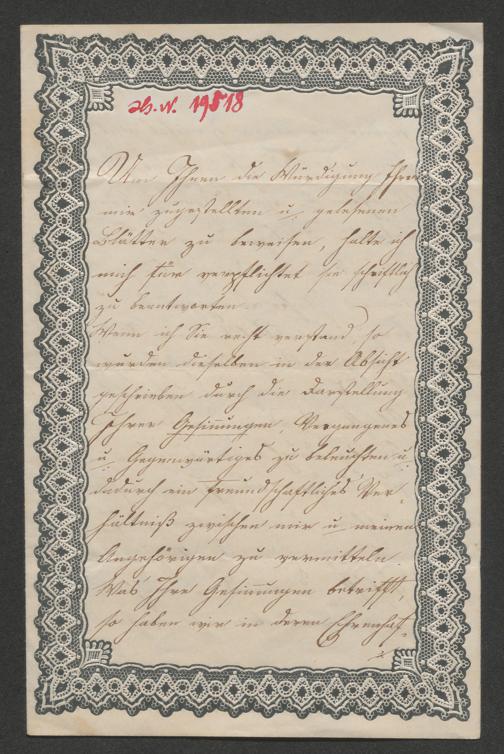 H. N. 19518
Um Ihnen die Würdigung Ihrer
mir zugestellten u. gelesenen
Blätter zu beweisen, halte ich
mich für verpflichtet sie schriftlich
zu beantworten
Wenn ich Sie recht verstand so
wurden dieselben in der Absicht
geschrieben durch die Darstellung
Ihrer Gesinnungen, Vergangenes
u. Gegenwärtiges zu beleuchten u.
dadurch ein freundschaftliches Ver-
hältniß zwischen mir u. meinen
Angehörigen zu vermitteln.
Was Ihre Gesinnungen betrifft,
so haben wir in deren Ehrenhaf-